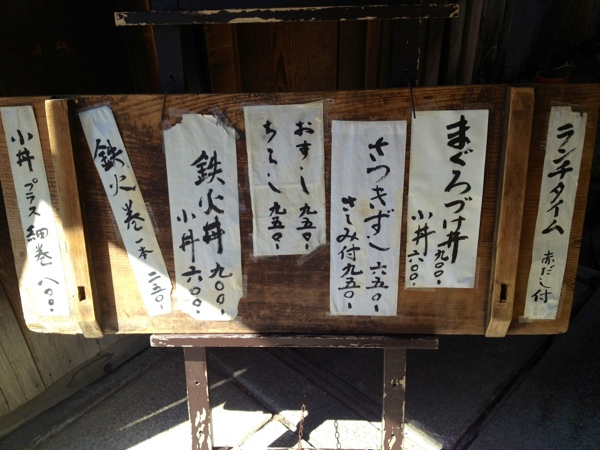 ランチタイム
赤だし付
まぐろづけ丼
九〇〇.
小丼
六〇〇.
さつきずし 六五〇.
さしみ付 九五〇.
おすし 九五〇.
ちらし 九五〇.
鉄火丼 九〇〇.
小丼 六〇〇.
鉄火巻 一本 二五〇.
小丼 プラス 細巻 八〇〇.